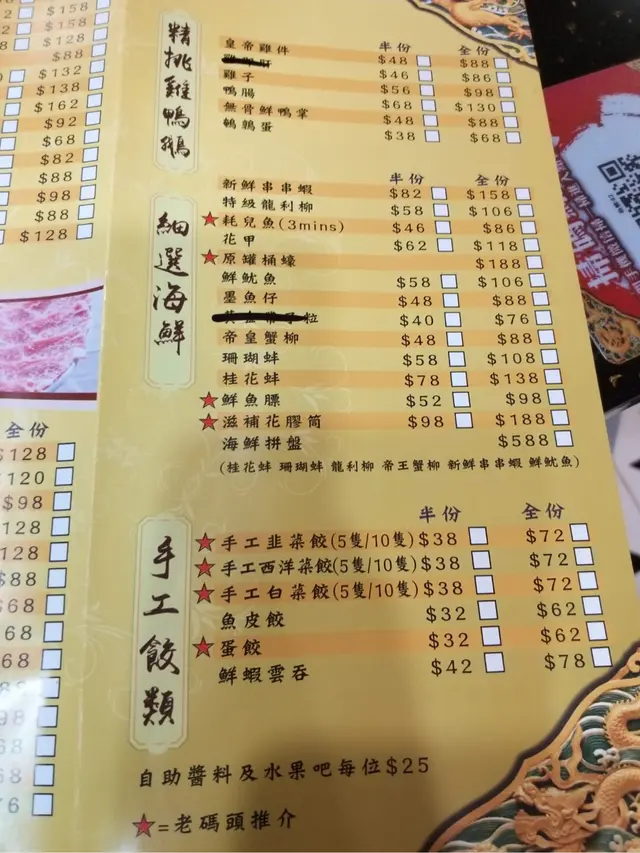 $158
$128
$128
$88
$132
$138
$162
$92
$68
$82
$88
$98
$88
$128
精挑雞鴨鵝
半份 全份
皇帝雞件 $48 $88
$46 $86
雞子 $56 $98
鴨腸 $68 $130
無骨鮮鴨掌 $48 $88
鵪鶉蛋 $38 $68
細選海鮮
半份 全份
新鮮串串蝦 $82 $158
特級龍利柳 $58 $106
★耗兒魚(3mins) $46 $86
花甲 $62 $118
★原罐桶蠔 $188
鮮魷魚 $58 $106
墨魚仔 $48 $88
粒 $40 $76
帝皇蟹柳 $48 $88
珊瑚蚌 $58 $108
桂花蚌 $78 $138
★鮮魚膘 $52 $98
★滋補花膠筒 $98 $188
海鮮拼盤 $588
(桂花蚌 珊瑚蚌 龍利柳 帝王蟹柳 新鮮串串蝦 鮮魷魚)
全份
$128
$120
$98
128
128
$88
$68
68
68
98
68
68
76
手工餃類
半份 全份
★手工韭菜餃(5隻/10隻) $38 $72
★手工西洋菜餃(5隻/10隻) $38 $72
★手工白菜餃(5隻/10隻) $38 $72
魚皮餃 $32 $62
★蛋餃 $32 $62
鮮蝦雲吞 $42 $78
自助醬料及水果吧每位$25
★=老碼頭推介